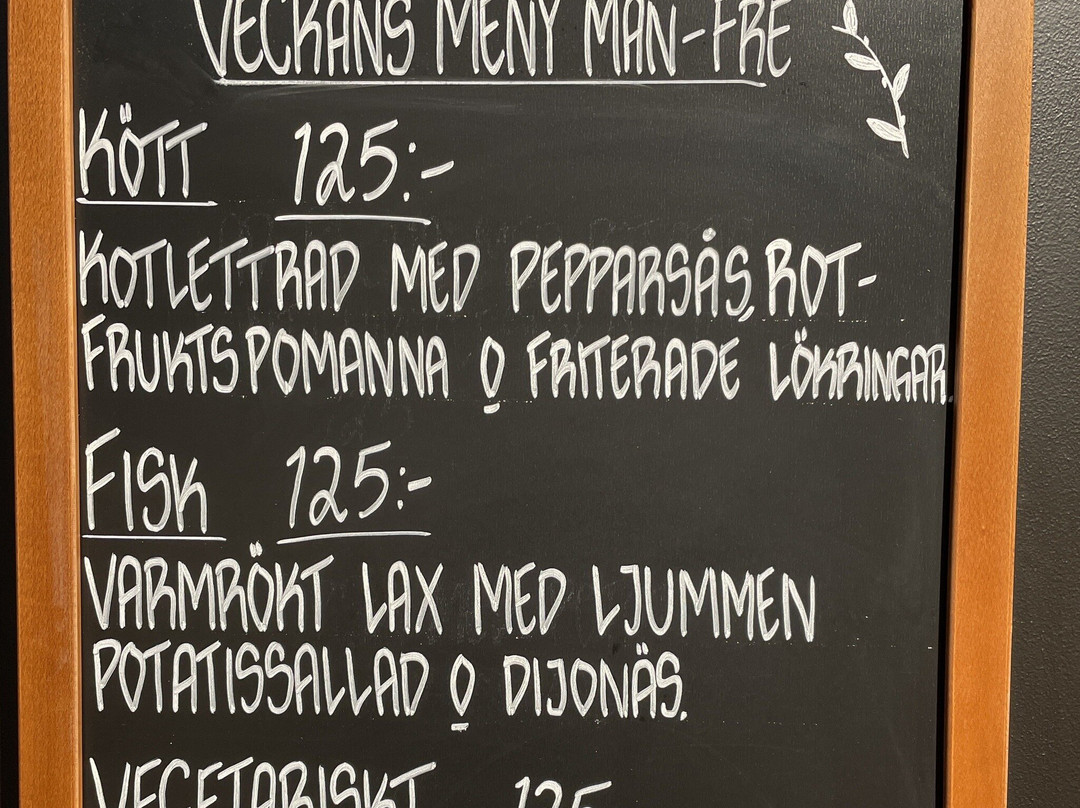 VECKANS MENY MÅN-FRE
KÖTT 125:-
KOTLETTRAD MED PEPPARSÅS, ROT-
FRUKTSPOMANNA O FRITERADE LÖKRINGAR.
FISK 125:-
VARMRÖKT LAX MED LJUMMEN
POTATISSALLAD O DIJONÄS.
VEGETARISKT 125